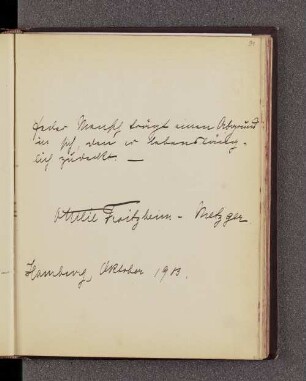 Jeder Mensch trägt einen Abgrund
in sich, den er lebensläng-
lich zudeckt. —
Ottilie Froitzheim - Metzger
Hamburg, Oktober 1913.